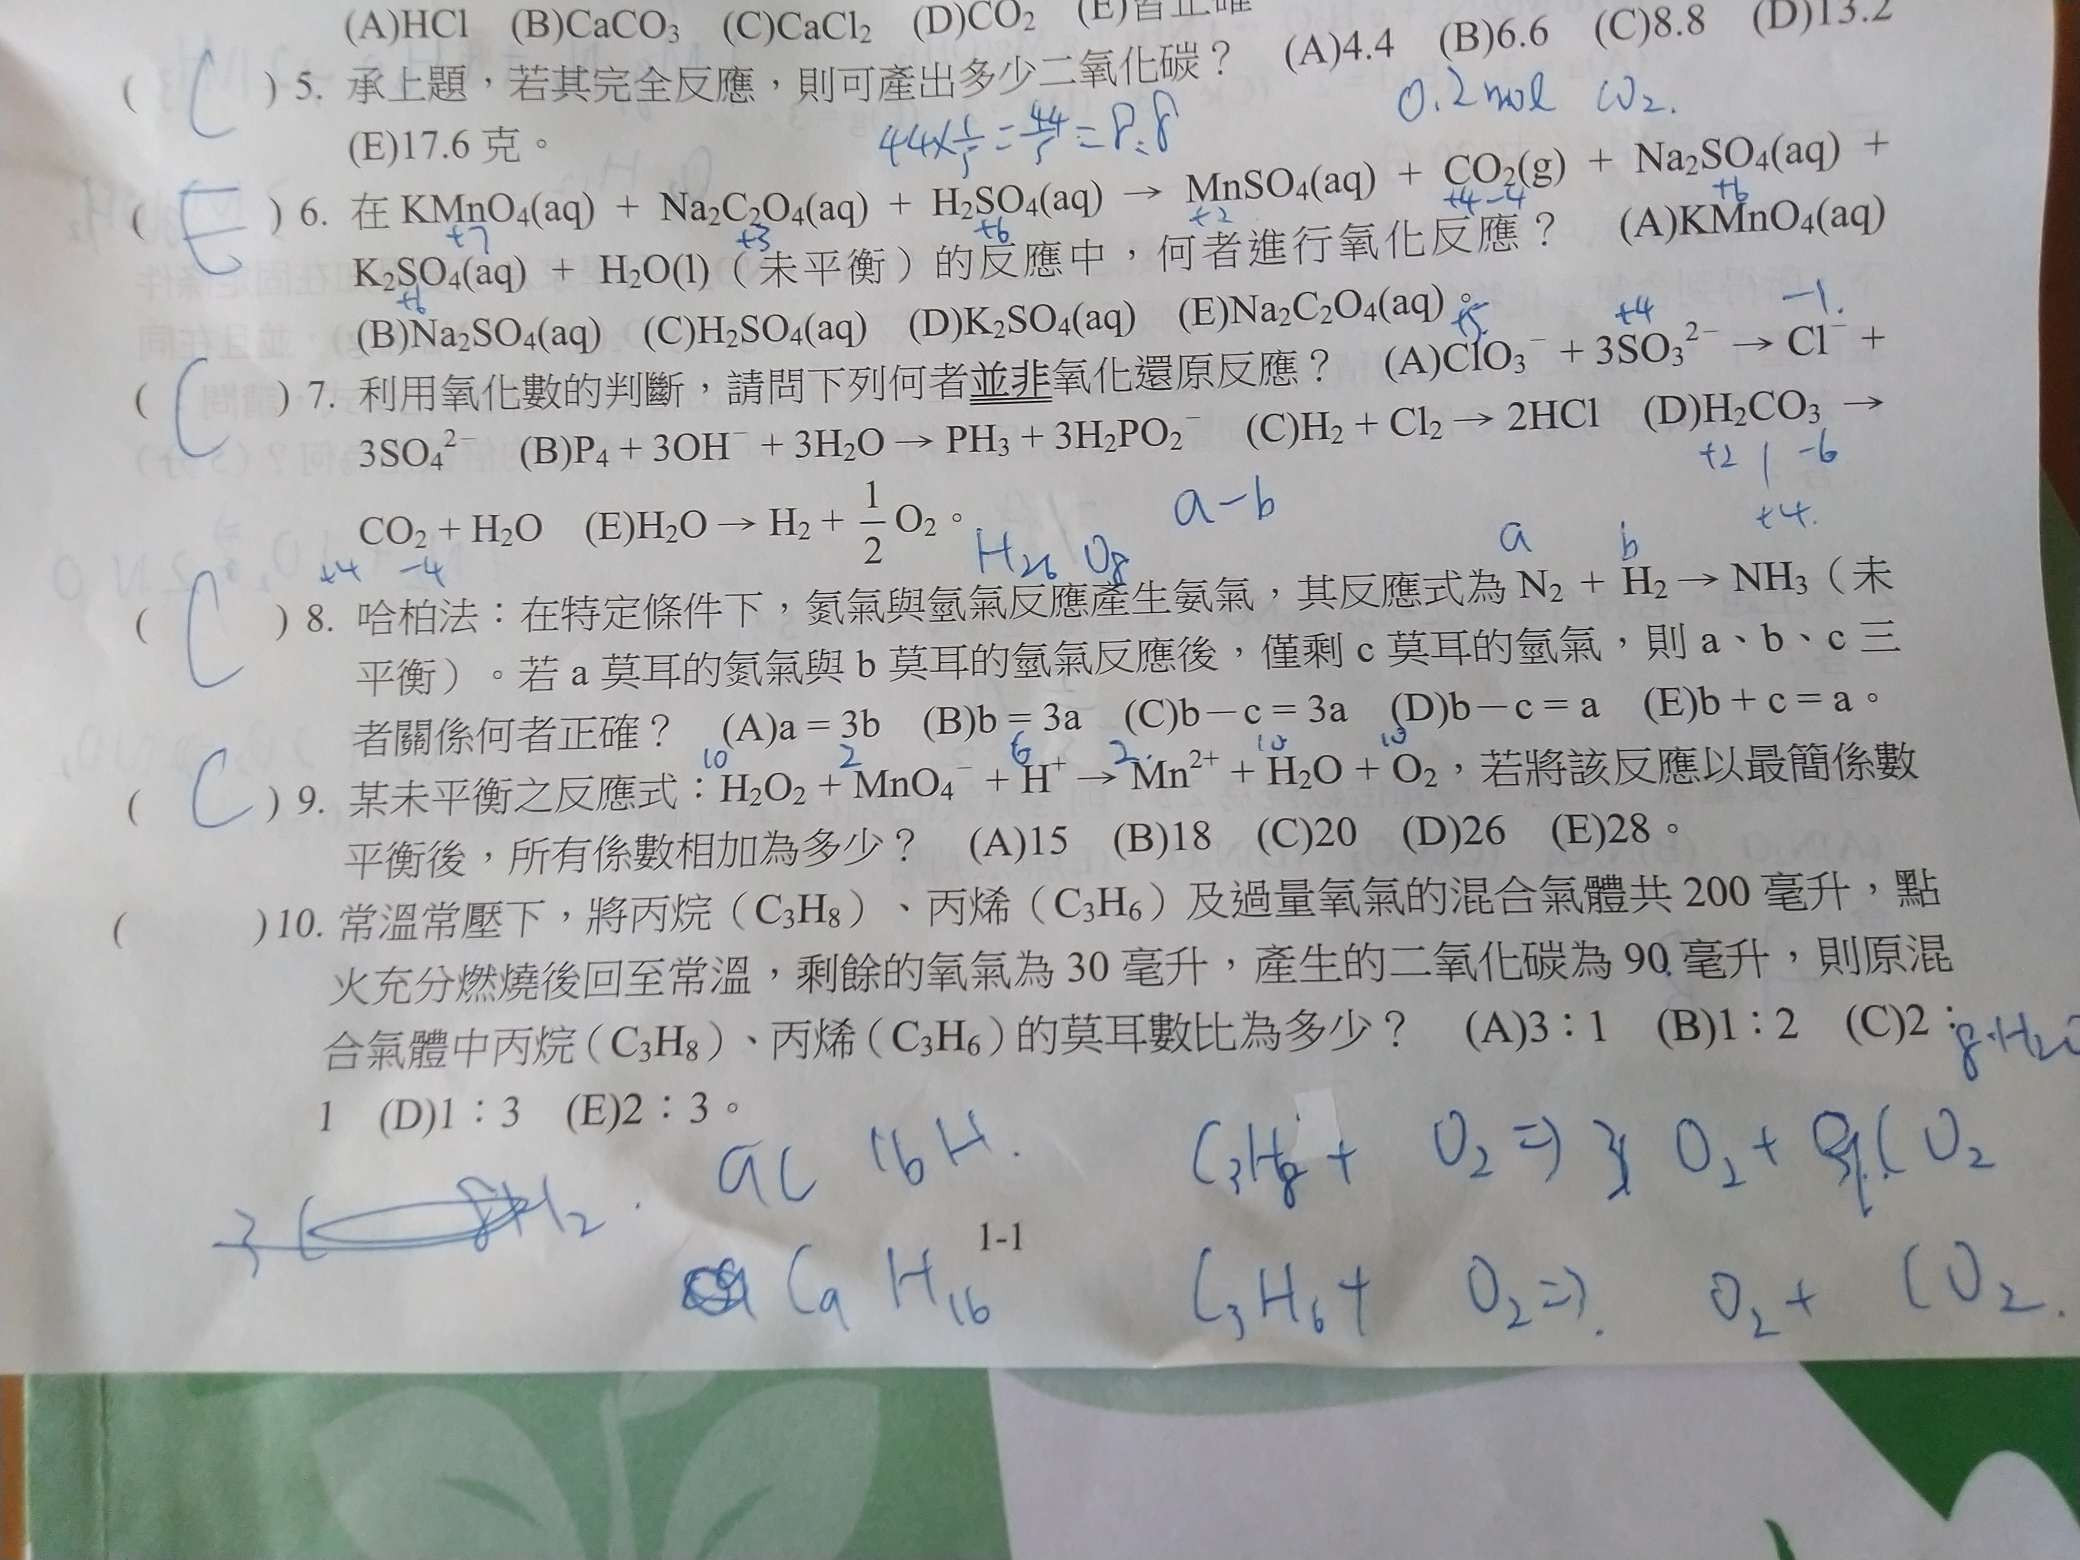 (A)HCl (B)CaCO₃ (C)CaCl₂ (D)CO₂ (E)皆正確
( C ) 5. 承上題，若其完全反應，則可產出多少二氧化碳？ (A)4.4 (B)6.6 (C)8.8 (D)13.2
0.2 mol CO₂.
(E)17.6 克。
44×1/5=44/5=8.8
( E ) 6. 在 KMnO₄(aq) + Na₂C₂O₄(aq) + H₂SO₄(aq) → MnSO₄(aq) + CO₂(g) + Na₂SO₄(aq) +
+7 +3 +6 +2 +4 -4 +6
K₂SO₄(aq) + H₂O(l)（未平衡）的反應中，何者進行氧化反應？ (A)KMnO₄(aq)
+6
(B)Na₂SO₄(aq) (C)H₂SO₄(aq) (D)K₂SO₄(aq) (E)Na₂C₂O₄(aq)。
+5 +4 -1.
( C ) 7. 利用氧化數的判斷，請問下列何者並非氧化還原反應？ (A)ClO₃⁻ + 3SO₃²⁻ → Cl⁻ +
3SO₄²⁻ (B)P₄ + 3OH⁻ + 3H₂O → PH₃ + 3H₂PO₂⁻ (C)H₂ + Cl₂ → 2HCl (D)H₂CO₃ →
+2 | -6
+4.
CO₂ + H₂O (E)H₂O → H₂ + 1/2 O₂。
+4 -4
a-b
H₂₆ O₈
a b
( C ) 8. 哈柏法：在特定條件下，氮氣與氫氣反應產生氨氣，其反應式為 N₂ + H₂ → NH₃（未
平衡）。若 a 莫耳的氮氣與 b 莫耳的氫氣反應後，僅剩 c 莫耳的氫氣，則 a、b、c 三
者關係何者正確？ (A)a = 3b (B)b = 3a (C)b－c = 3a (D)b－c = a (E)b + c = a。
10 2 6 2. 10 10
( C ) 9. 某未平衡之反應式：H₂O₂ + MnO₄⁻ + H⁺ → Mn²⁺ + H₂O + O₂，若將該反應以最簡係數
平衡後，所有係數相加為多少？ (A)15 (B)18 (C)20 (D)26 (E)28。
( )10. 常溫常壓下，將丙烷（C₃H₈）、丙烯（C₃H₆）及過量氧氣的混合氣體共 200 毫升，點
火充分燃燒後回至常溫，剩餘的氧氣為 30 毫升，產生的二氧化碳為 90 毫升，則原混
合氣體中丙烷（C₃H₈）、丙烯（C₃H₆）的莫耳數比為多少？ (A)3：1 (B)1：2 (C)2：
1 (D)1：3 (E)2：3。
9C 16H.
C₃H₈ + O₂ ⇒ O₂ + CO₂
1-1
C₉ H₁₆
C₃H₆ + O₂ ⇒. O₂ + CO₂.